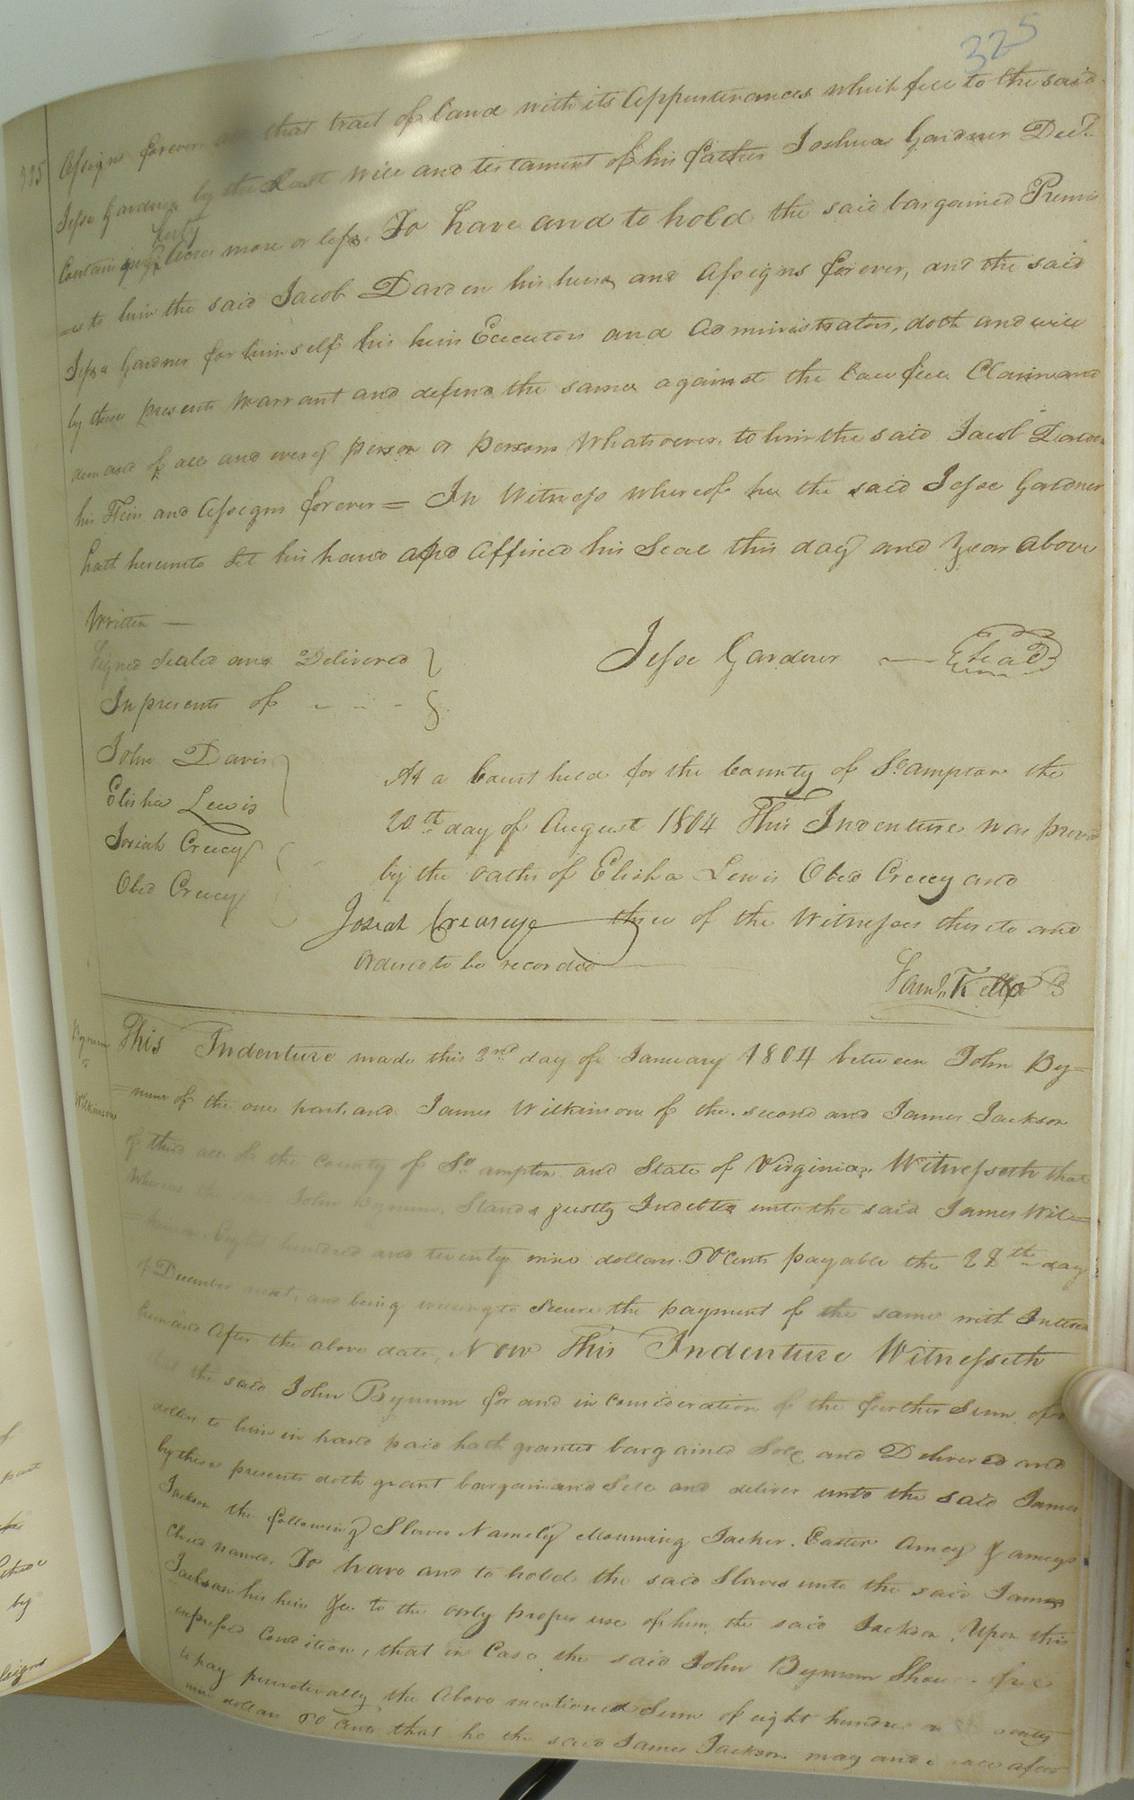 325
Assigns forever all that tract of land with its Appurtenances which fell to the said
Jesse Gardner by the Last will and testament of his father Joshua Gardner Decd.
forty
Containing Acres more or less. To have and to hold the said bargained Premis
=es to him the said Jacob Darden his heirs and Assigns forever, and the said
Jesse Gardner for himself his heirs Executors and Administrators, doth and will
by these presents Warrant and defend the same against the lawfull Claim and
demand of all and every person or persons Whatsoever to him the said Jacob Darden
his Heirs and Assigns forever = In Witness whereof he the said Jesse Gardner
hath hereunto set his hand and Affixed his Seal this day and Year above
Written —
Signed Sealed and Delivered
In presents of
Jesse Gardner — Seal
John Davis
Elisha Lewis
Josiah Creecy
Obed Creecy
At a Court held for the County of So.ampton the
20th day of August 1804 This Indenture was proved
by the oaths of Elisha Lewis Obed Creecy and
Josiah Creacy three of the Witnesses thereto and
Ordered to be recorded
Saml. Kello
Bynum
to
Wilkinson
This Indenture made this 2nd day of January 1804 between John By=
=num of the one part, and James Wilkinson of the second and James Jackson
of third all of the County of So.ampton and State of Virginia, Witnesseth that
Whereas the said John Bynum Stands justly Indebted unto the said James Wil=
kinson Eight hundred and twenty nine dollars cents payable the 28th day
of December next, and being willing to Secure the payment of the same with Interest
from and After the above date, Now This Indenture Witnesseth
that the said John Bynum for and in consideration of the further Sum of
dollar to him in hand paid hath granted bargained Sold and Delivered and
by these presents doth grant bargain and Sell and deliver unto the said James
Jackson the following Slaves Namely Mourning Jacker. Easter Amey & ameys
Child names. To have and to hold the said Slaves unto the said James
Jackson his heirs &c. to the only proper use of him the said Jackson. Upon this
express Condition, that in Case the said John Bynum Shou
to pay punctually the Above mentioned Sum of eight hundred
nine dollars that he the said James Jackson may and after